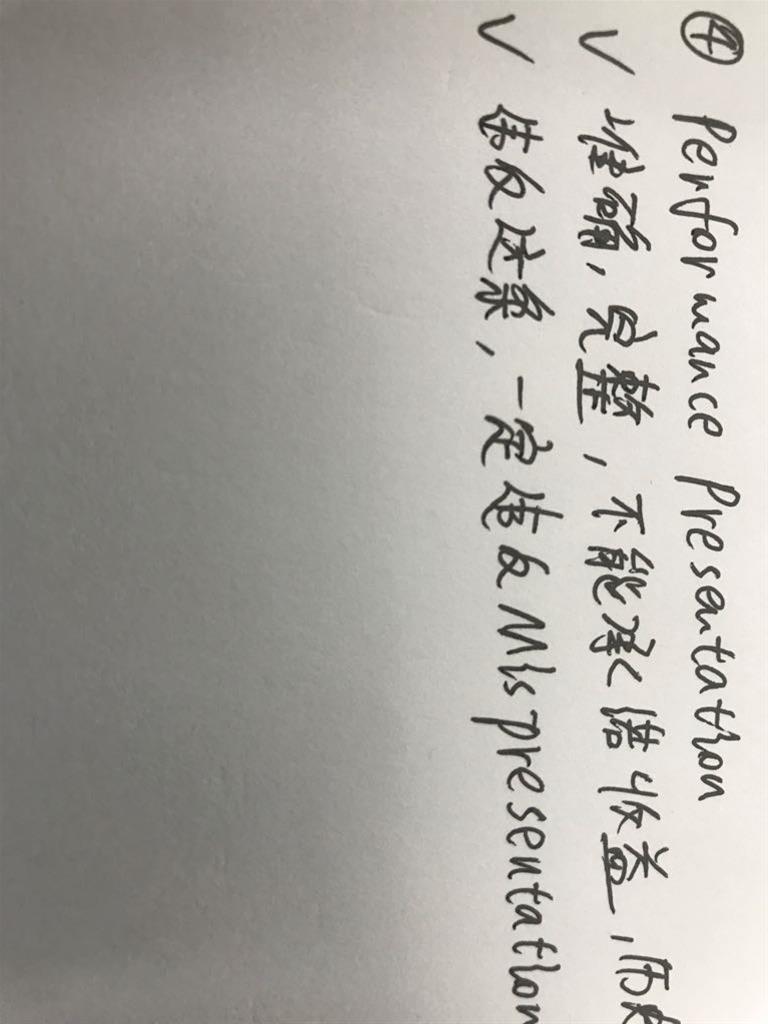 ④ Performance Presentation
✓ 准确,完整,不能承诺收益,历史
✓ 违反这条,一定违反Mispresentation